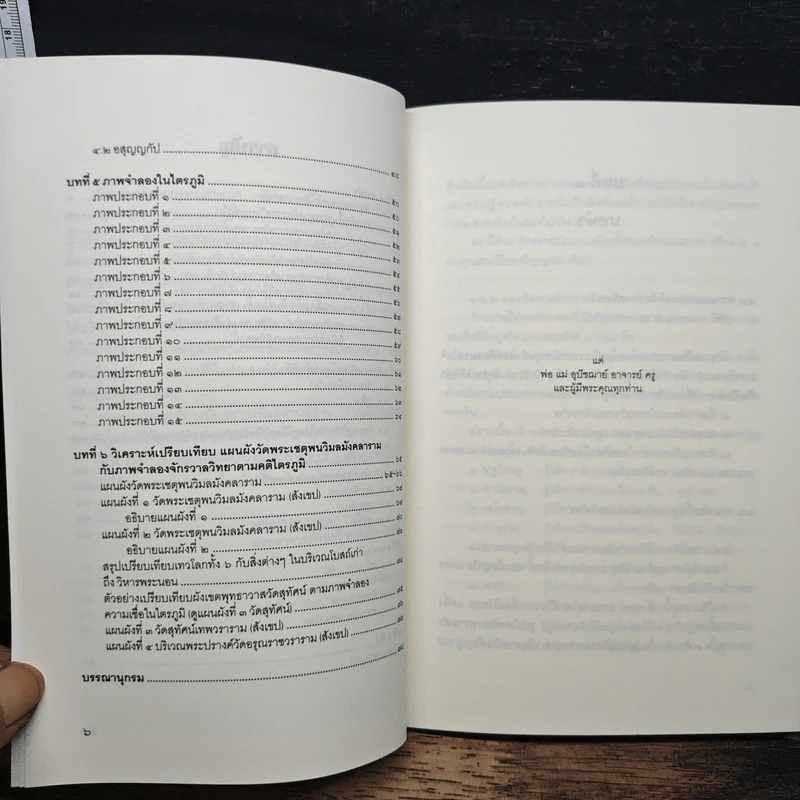 ๔.๒ อสุญญกัป
บทที่ ๕ ภาพจำลองในไตรภูมิ
ภาพประกอบที่ ๑ ๕๐
ภาพประกอบที่ ๒ ๕๐
ภาพประกอบที่ ๓ ๕๑
ภาพประกอบที่ ๔ ๕๒
ภาพประกอบที่ ๕ ๕๓
ภาพประกอบที่ ๖ ๕๔
ภาพประกอบที่ ๗ ๕๕
ภาพประกอบที่ ๘ ๕๖
ภาพประกอบที่ ๙
ภาพประกอบที่ ๑๐
ภาพประกอบที่ ๑๑ ๖๐
ภาพประกอบที่ ๑๒ ๖๑
ภาพประกอบที่ ๑๓ ๖๒
ภาพประกอบที่ ๑๔ ๖๓
ภาพประกอบที่ ๑๕ ๖๔
บทที่ ๖ วิเคราะห์เปรียบเทียบ แผนผังวัดพระเชตุพนวิมลมังคลาราม
กับภาพจำลองจักรวาลวิทยาตามคติไตรภูมิ ๖๕
แผนผังวัดพระเชตุพนวิมลมังคลาราม ๖๕-๖๖
แผนผังที่ ๑ วัดพระเชตุพนวิมลมังคลาราม (สังเขป)
อธิบายแผนผังที่ ๑
แผนผังที่ ๒ วัดพระเชตุพนวิมลมังคลาราม (สังเขป)
อธิบายแผนผังที่ ๒
สรุปเปรียบเทียบเทวโลกทั้ง ๖ กับสิ่งต่างๆ ในบริเวณโบสถ์เก่า
ถึง วิหารพระนอน
ตัวอย่างเปรียบเทียบผังเขตพุทธาวาสวัดสุทัศน์ ตามภาพจำลอง
ความเชื่อในไตรภูมิ (ดูแผนผังที่ ๓ วัดสุทัศน์)
แผนผังที่ ๓ วัดสุทัศน์เทพวราราม (สังเขป)
แผนผังที่ ๔ บริเวณพระปรางค์วัดอรุณราชวราราม (สังเขป)
บรรณานุกรม
๖
แด่
พ่อ แม่ อุปัชฌาย์ อาจารย์ ครู
และผู้มีพระคุณทุกท่าน